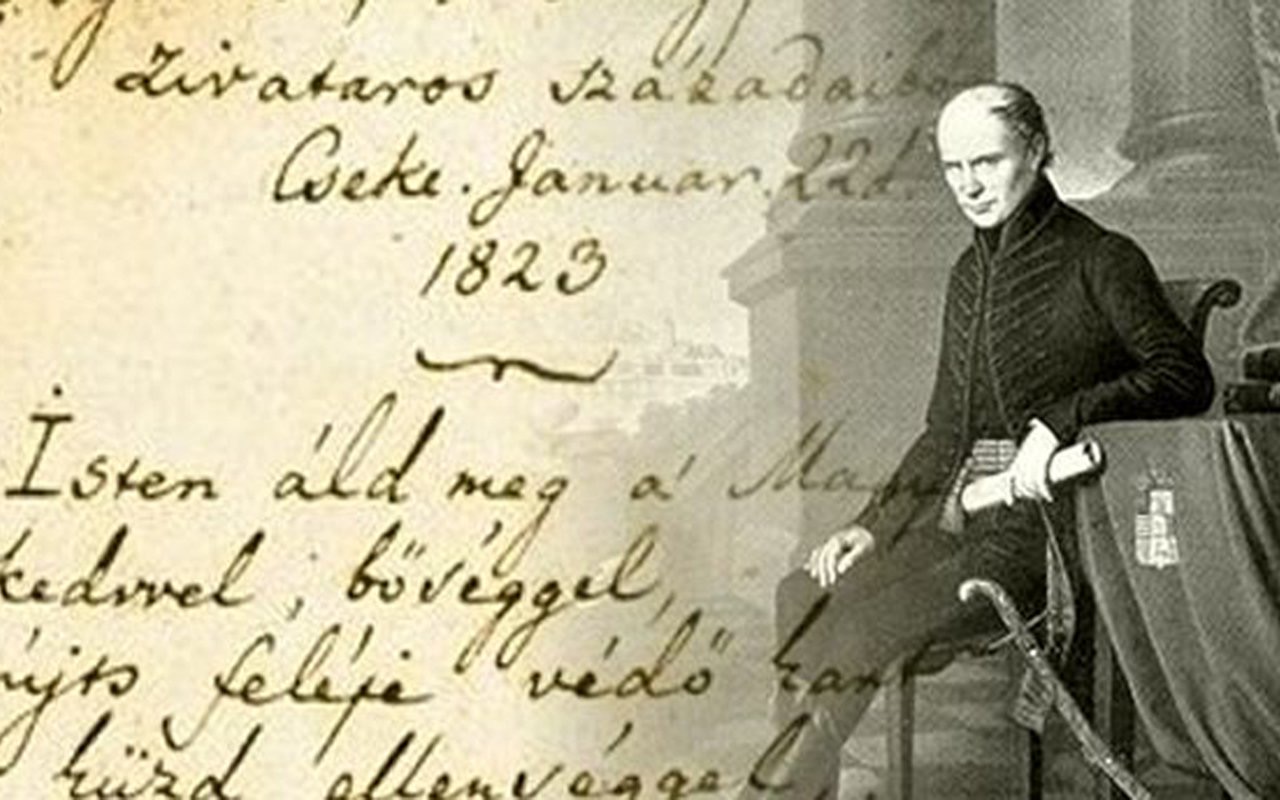 Zivataros Századaibo
Cseke. Januar. 22d.
1823
Isten áld meg a' Mag
kedvvel, bőséggel,
nyjts feléje védő kart
küzd ellenséggel,